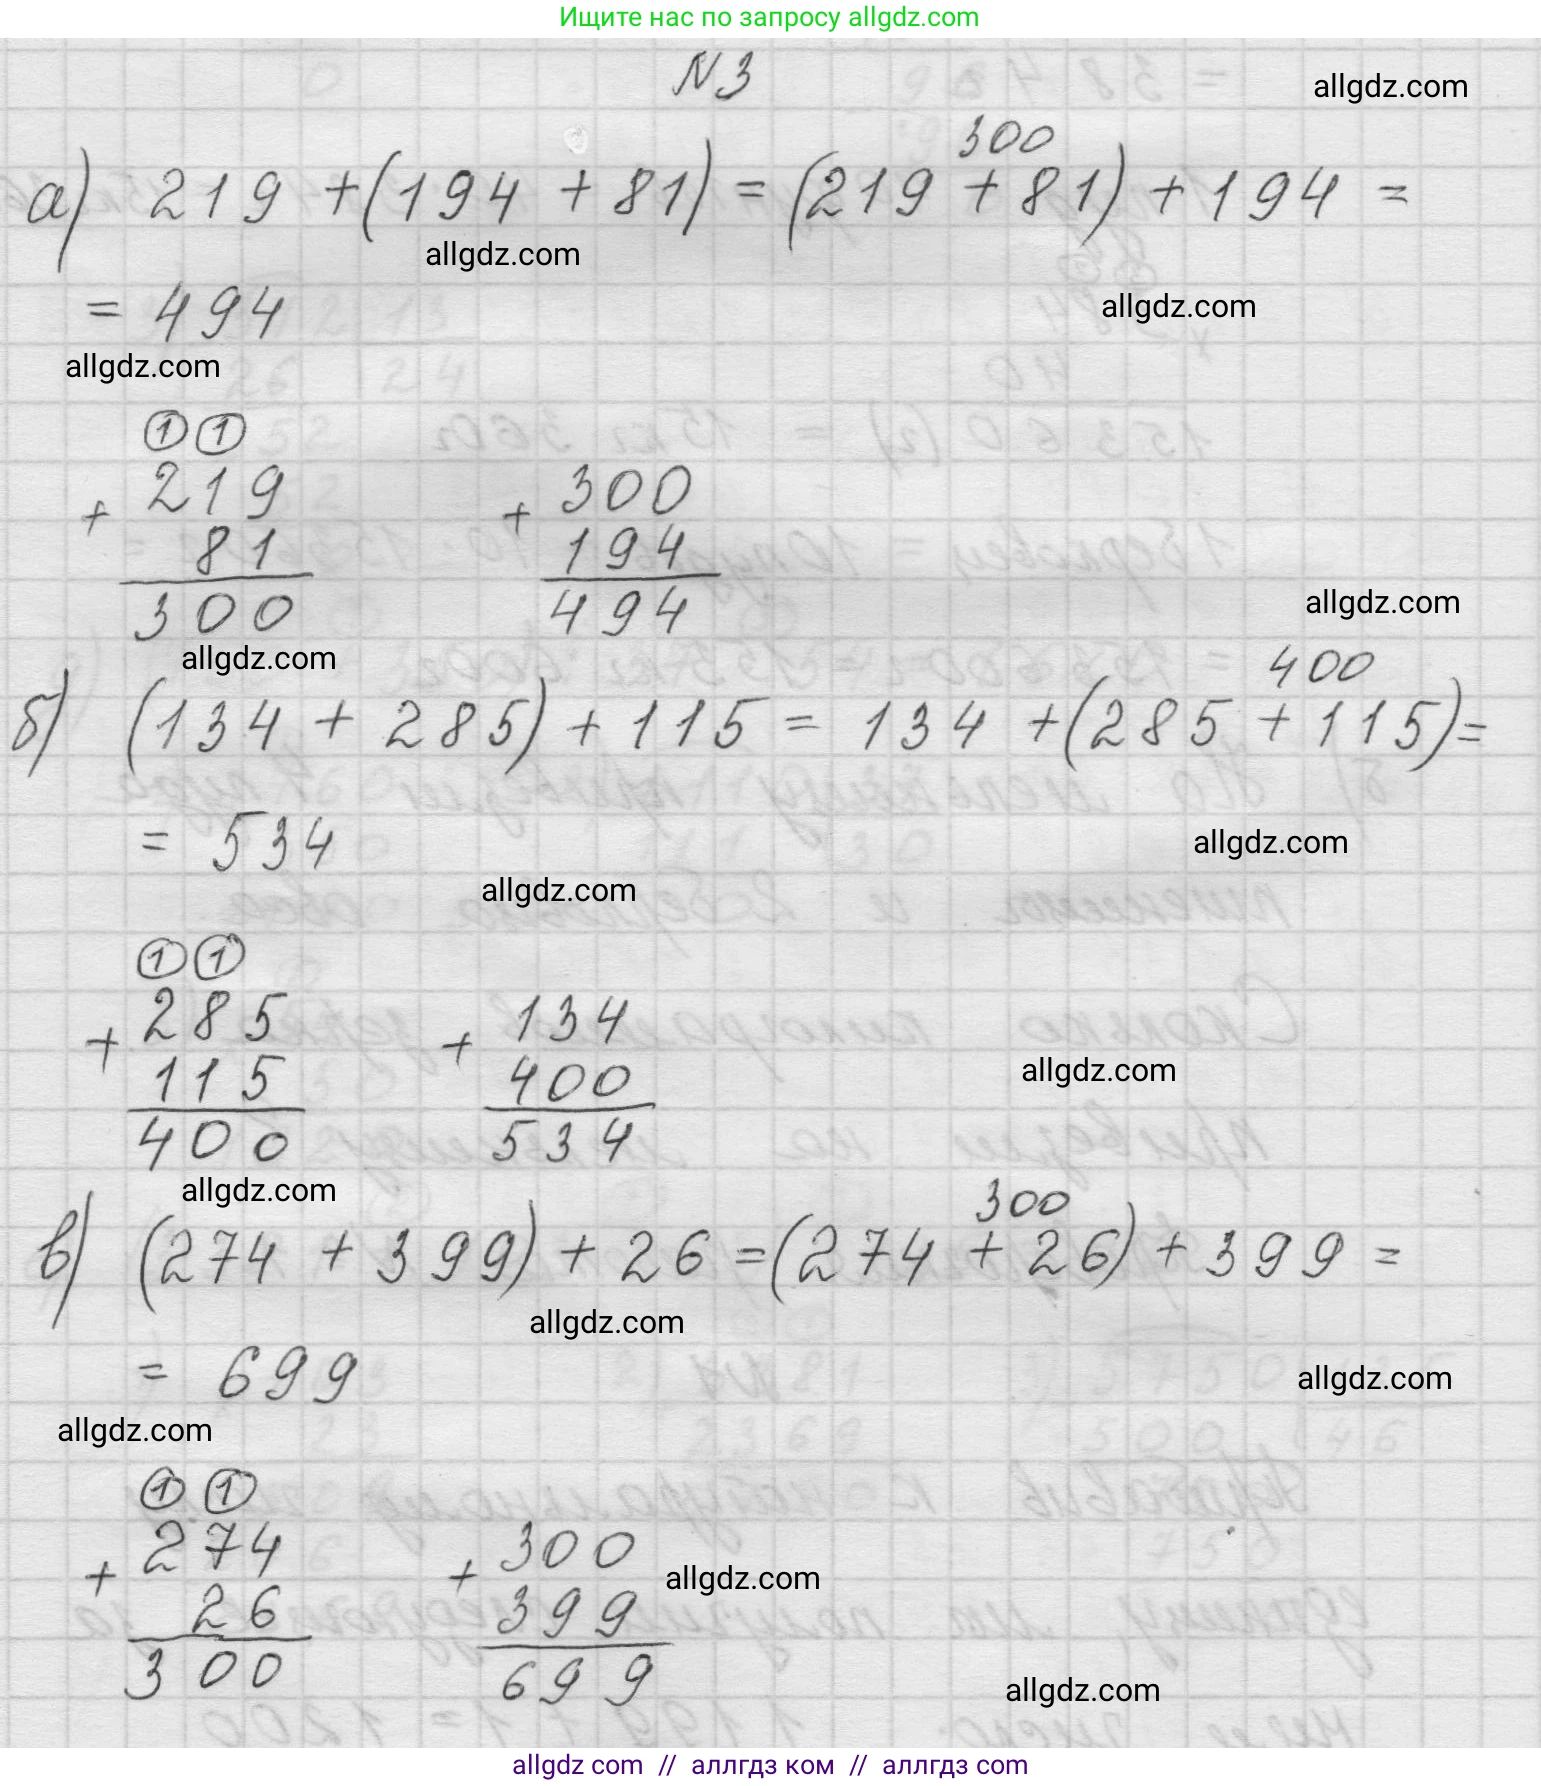 Ищите нас по запросу allgdz.com
N3
allgdz.com
300
а) 219 + (194 + 81) = (219 + 81) + 194 =
allgdz.com
= 494
allgdz.com
allgdz.com
1 1
219
+
81
300
300
+
194
494
allgdz.com
allgdz.com
400
б) (134 + 285) + 115 = 134 + (285 + 115) =
= 534
allgdz.com
allgdz.com
1 1
285
+
115
400
134
+
400
534
allgdz.com
allgdz.com
300
в) (274 + 399) + 26 = (274 + 26) + 399 =
allgdz.com
= 699
allgdz.com
allgdz.com
1 1
274
+
26
300
300
+
399
699
allgdz.com
allgdz.com
allgdz.com // аллгдз ком // аллгдз.com